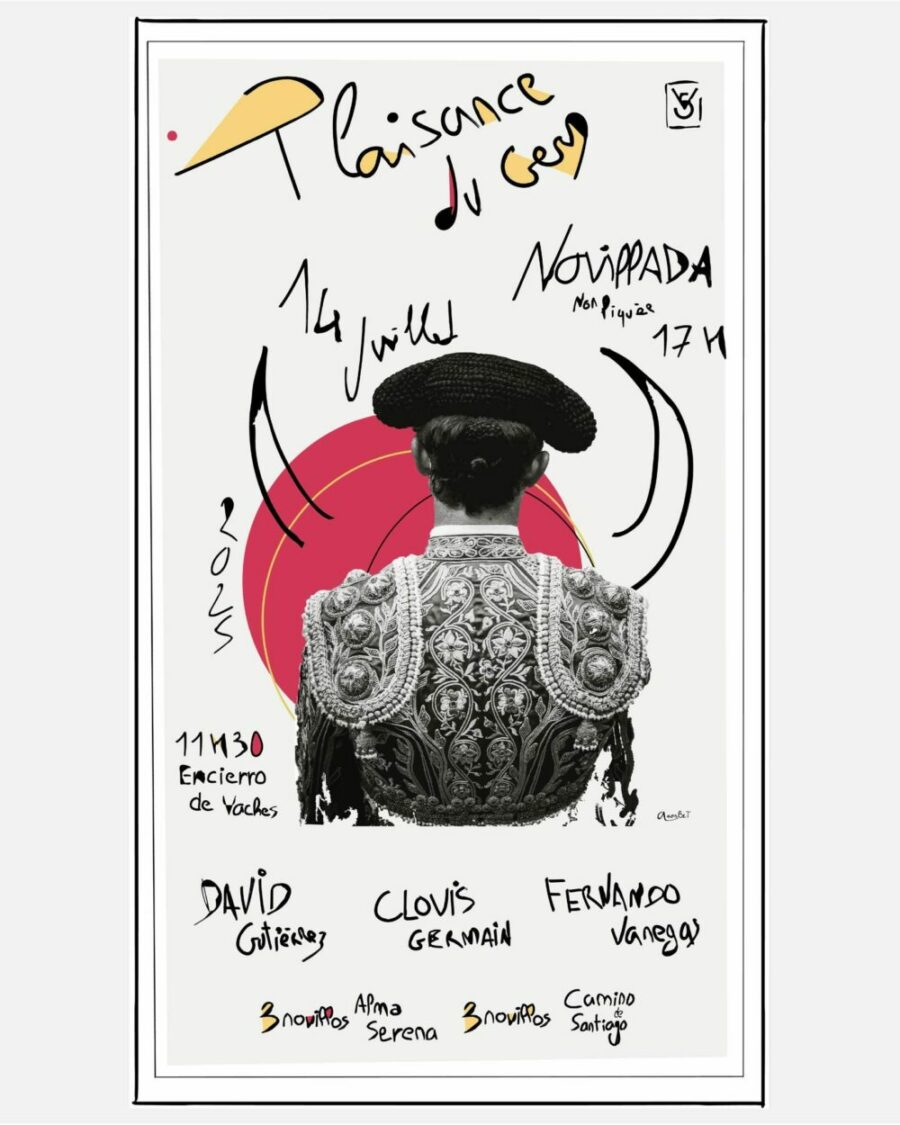 Plaisance
du Gers
14
Juillet
Novillada
Non Piquée
17H
2025
11H30
Encierro
de Vaches
DAVID
Gutiérrez
CLOVIS
GERMAIN
FERNANDO
Vanegas
3 novillos Alma
Serena
3 novillos Camino
de
Santiago